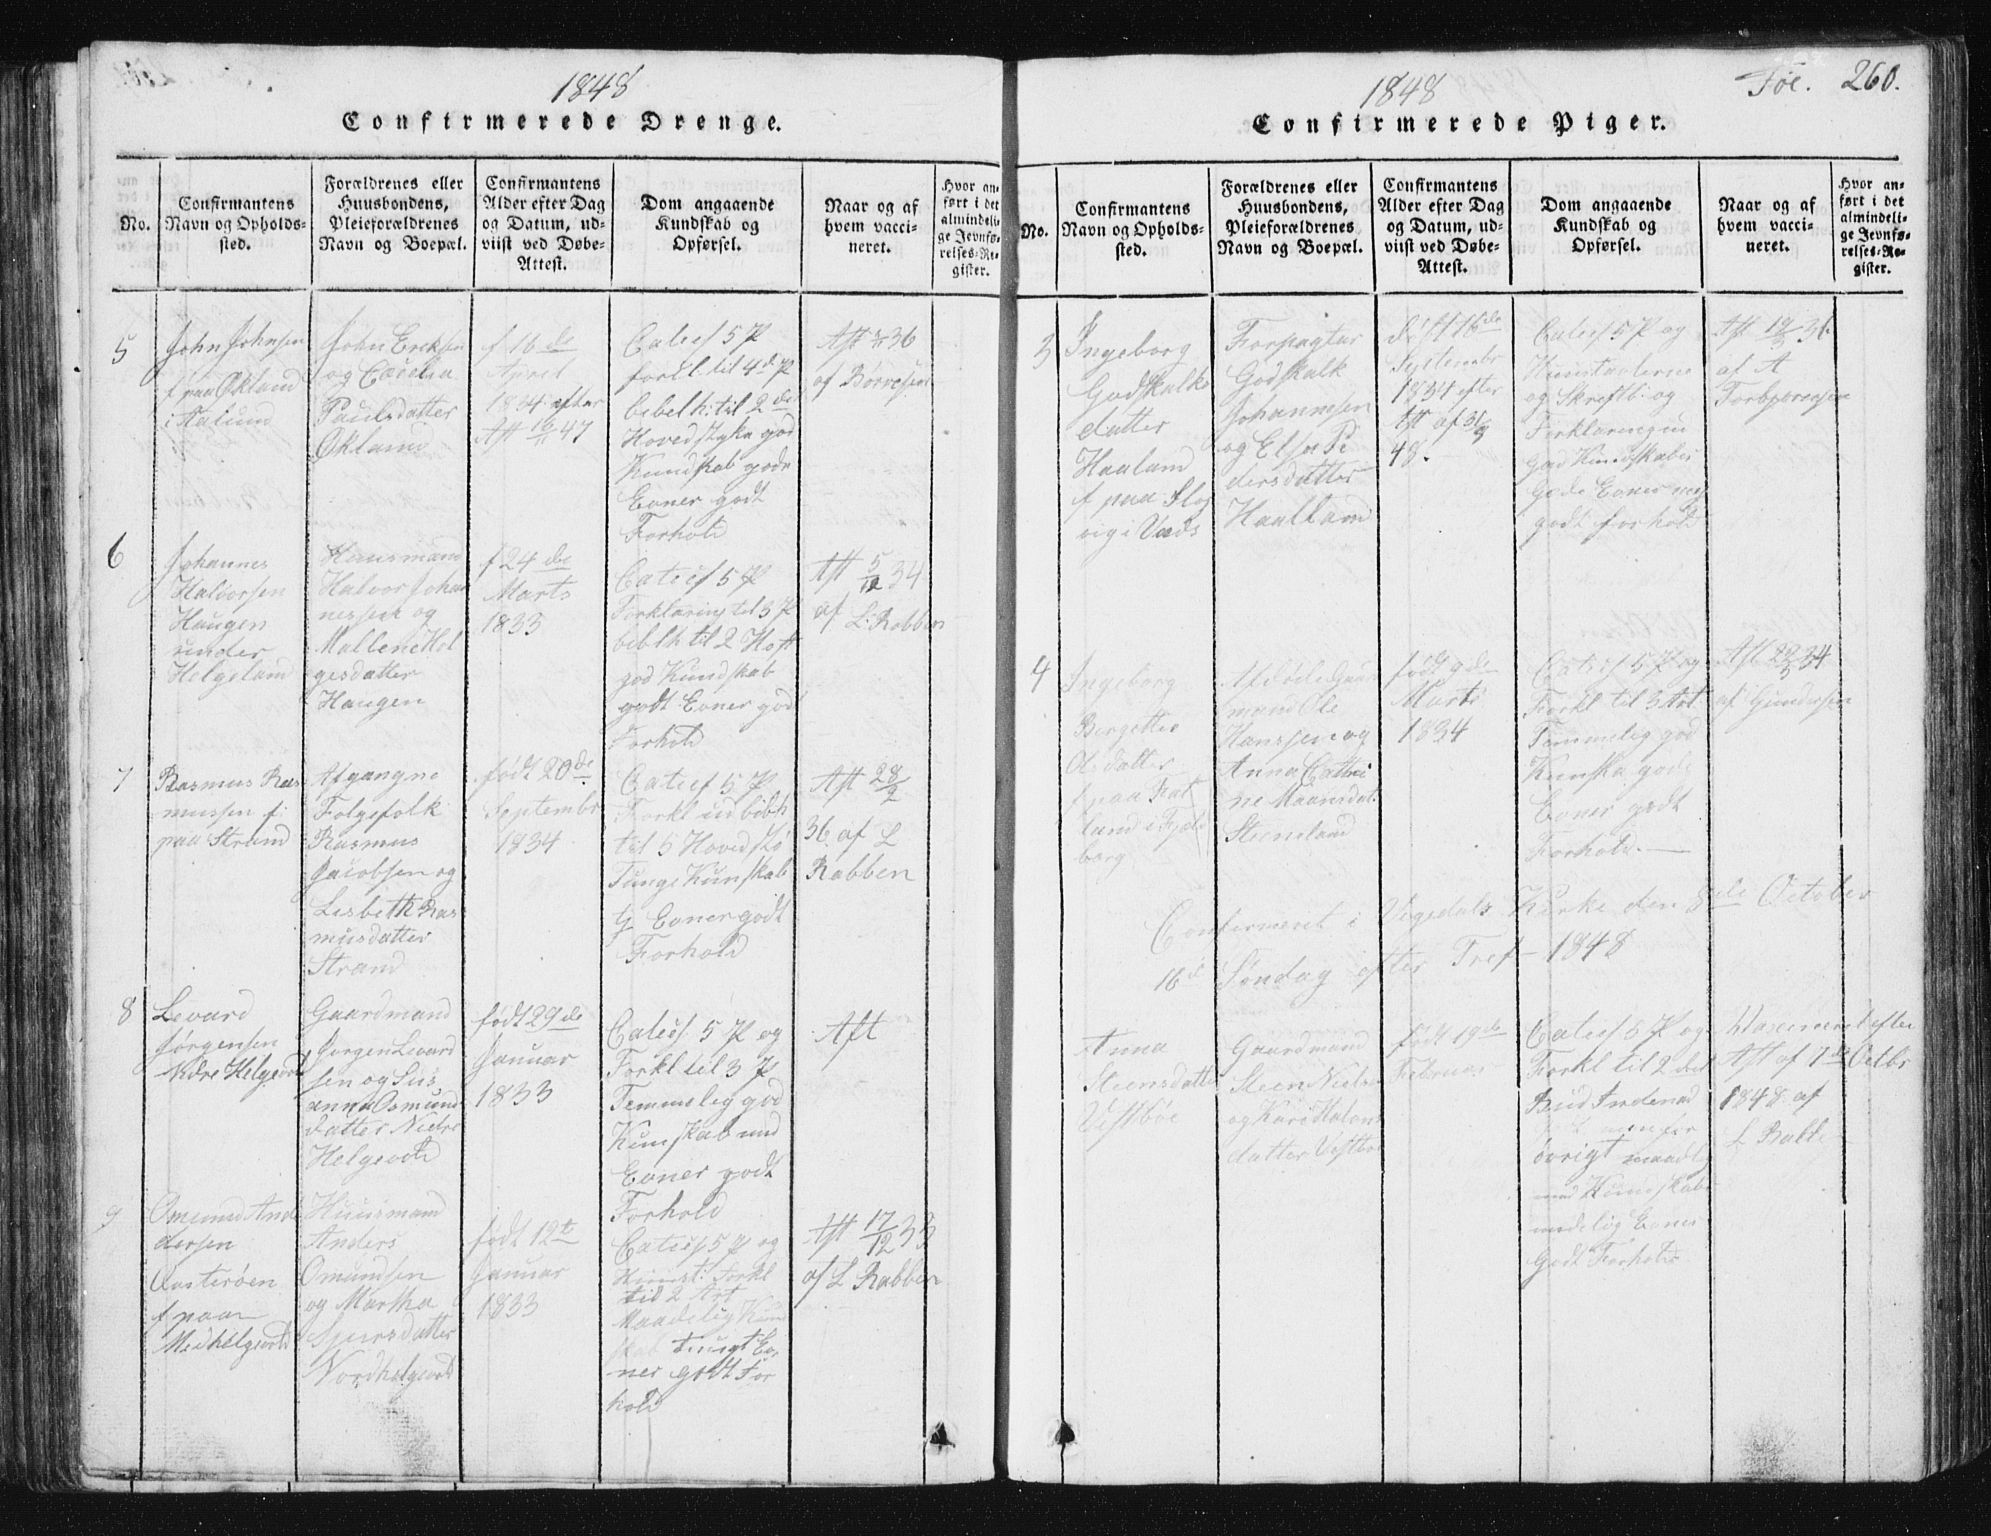 1848
Confirmerede Drenge.
No.
Confirmantens
Navn og Opholds-
sted.
Forældrenes eller
Huusbondens,
Pleieforældrenes
Navn og Boepæl.
Confirmantens
Alder efter Dag
og Datum, ud-
viist ved Døbe-
Attest.
Dom angaaende
Kundskab og
Opførsel.
Naar og af
hvem vacci-
neret.
Hvor an-
ført i det
almindeli-
ge Jevnfø-
relses-Re-
gister.
5
John Johnsen
f paa Økland
i Aalund
John Ericksen
og Cecelia
Paulsdatter
Økland
f 16de
April
1834 efter
Att 16/11 47
Catics 5 P
forkl til 4de P
bibelh: til 2de
Hovedstyke god
Kundskab gode
Evner godt
Forhold
Aft 36
af Børvesen
6
Johannes
Halvorsen
Haugen
under
Helgeland
Huusmand
Halvor Johan
nessen og
Mallene Hel
gesdatter
Haugen
f 24de
Marts
1833
Catics 5 P
Forklaring til 3 P
bibelh til 2 Hoft
god Kundskab
godt Evner god
Forhold
Aft 5/12 34
af L: Robben
7
Rasmus Ras
mussen f:
paa Strand
Afgangne
Folgefolk
Rasmus
Jacobsen og
Lisbeth Ras
musdatter
Strand
født 20de
Septembr
1834
Catics 5 P
Forkl ud bibh
til 5 Hovedstø
Tunge Kunskab
Evner godt
Forhold
Aft 28/2
36. af L
Rabben
8
Levard
Jørgensen
Nedre Helgevold
Gaardmand
Jørgen Levard
sen og Sus
anna Osmund
datter Nedre
Helgevold
født 29de
Januar
1833
Catics. 5 P og
Forkl til 3 P
Temmelig god
Kunskab und
Evner godt
Forhold
Aft
9
Omund And
dersen
Oasterøen
f paa
Medhelgevold
Huusmand
Anders
Omundsen
og Martha
Sjursdatter
Nordhelgevold
født 12t
Januar
1833
Catics 5 P og
Forkl
tid 2 Art
Maadelig Kund
skab tungt Ev,
ner godt For
hold
Aft 17/12 33
af L Rabben
1848
Føe. 260.
Confirmerede Piger.
No.
Confirmantens
Navn og Opholds-
sted.
Forældrenes eller
Huusbondens,
Pleieforældrenes
Navn og Boepæl.
Confirmantens
Alder efter Dag
og Datum, ud-
viist ved Døbe-
Attest.
Dom angaaende
Kundskab og
Opførsel.
Naar og af
hvem vacci-
neret.
Hvor an-
ført i det
almindeli-
ge Jevnfø-
relses-Re-
gister.
3
Ingeborg
Godskalks
datter
Haaland
f paa Slog
vig i Vads
Forpagter
Godskalk
Johannesen
og Elsa Pe
dersdatter
Haaland
født 16de
Septembr
1834 efter
Att af
48.
Catics 5 P og
Huustavlerne
og Skriftb: og
Forklaringen
god Kundskaber
Gode Evner meg
godt forhold
Aft 36
af A
Torbjørnsen
4
Ingeborg
Bergette
Olsdatter
f paa
land i Fjel
berg
Afdøde Gaar
mand Ole
Hanssen og
Anna Cathri
ne Maansdat.
Steensland
født 9de
Marts
1834
Catics 5 P og
Forkl til 3 Art
Temmelig god
Kunska gode
Evner godt
Forhold.
Aft 34
af Gundersen
Confirmeret i Vigedals Kirke den 8de October
16de Søndag efter Tref 1848
Anna
Steensdatter
Vestbøe
Gaardmand
Steen Nielsen
og Kari Halvors
datter Vestbø
født 19de
Februar
Catics 5 P og
Forkl til 2 det
Bud
øvrigt maadeg
Kundskab
Evner
Godt Forhold
Vaxineret efter
Aft af 7de Octbr
1848 af
L Rabbe